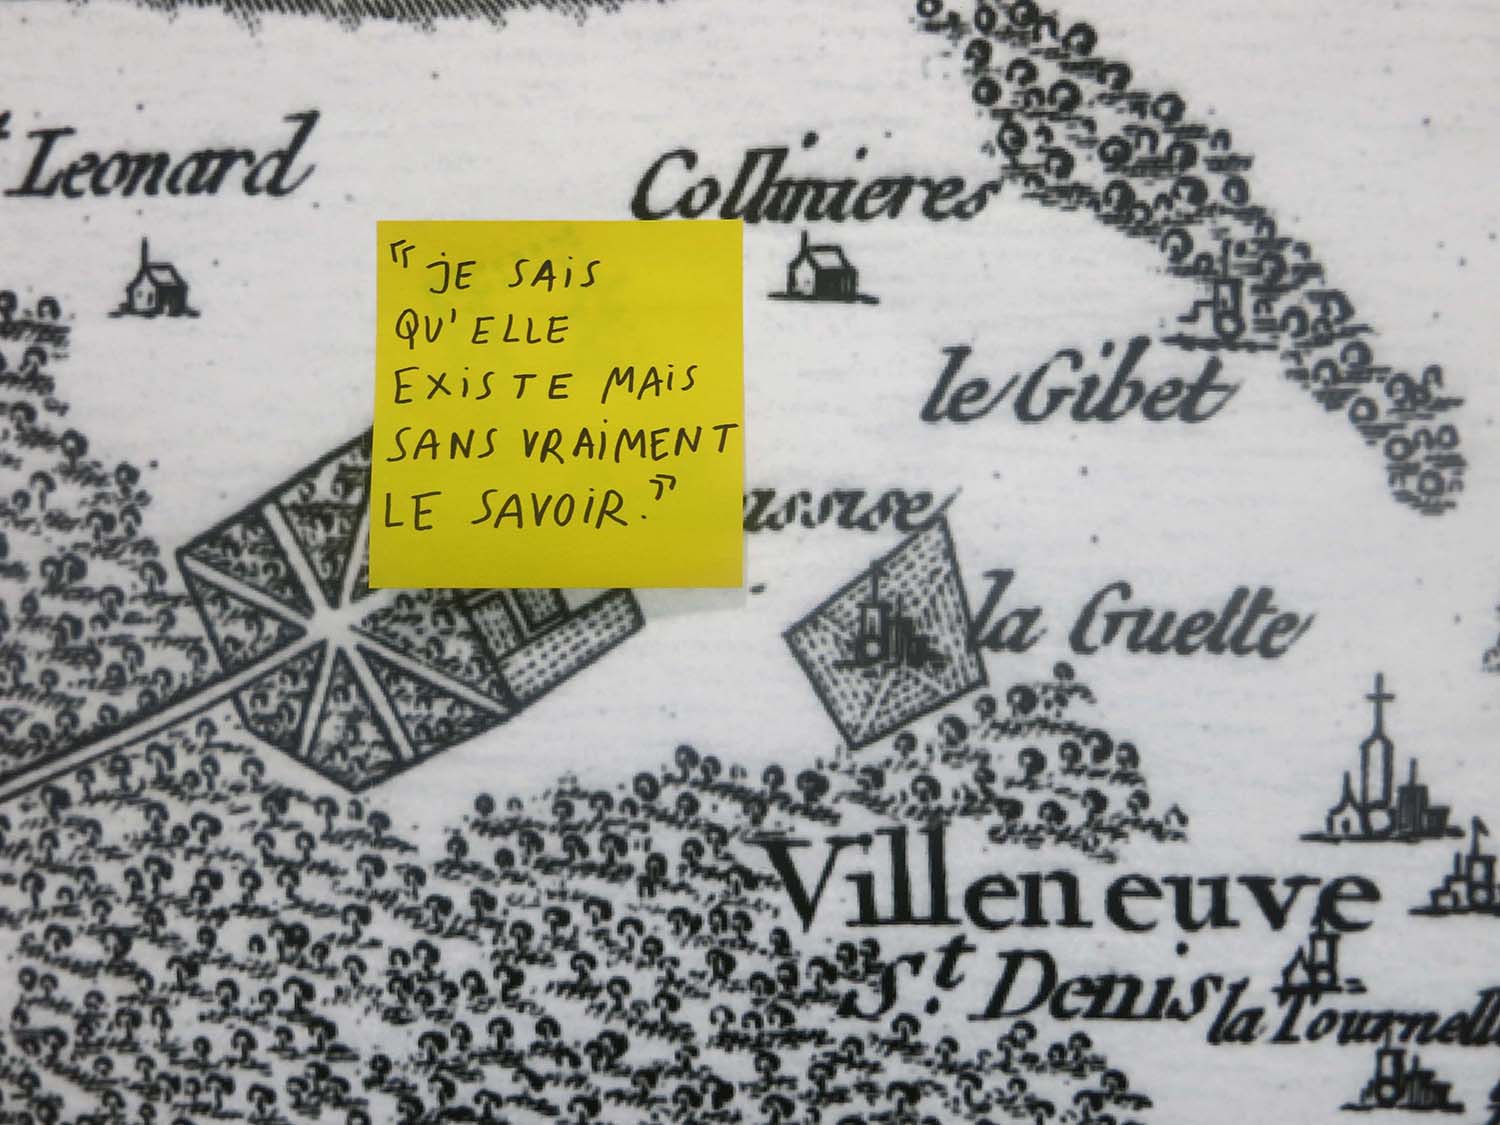 t Leonard
Collinieres
« JE SAIS
QU'ELLE
EXISTE MAIS
SANS VRAIMENT
LE SAVOIR. »
le Gibet
la Guette
Villeneuve
S.t Denis
la Tournelle